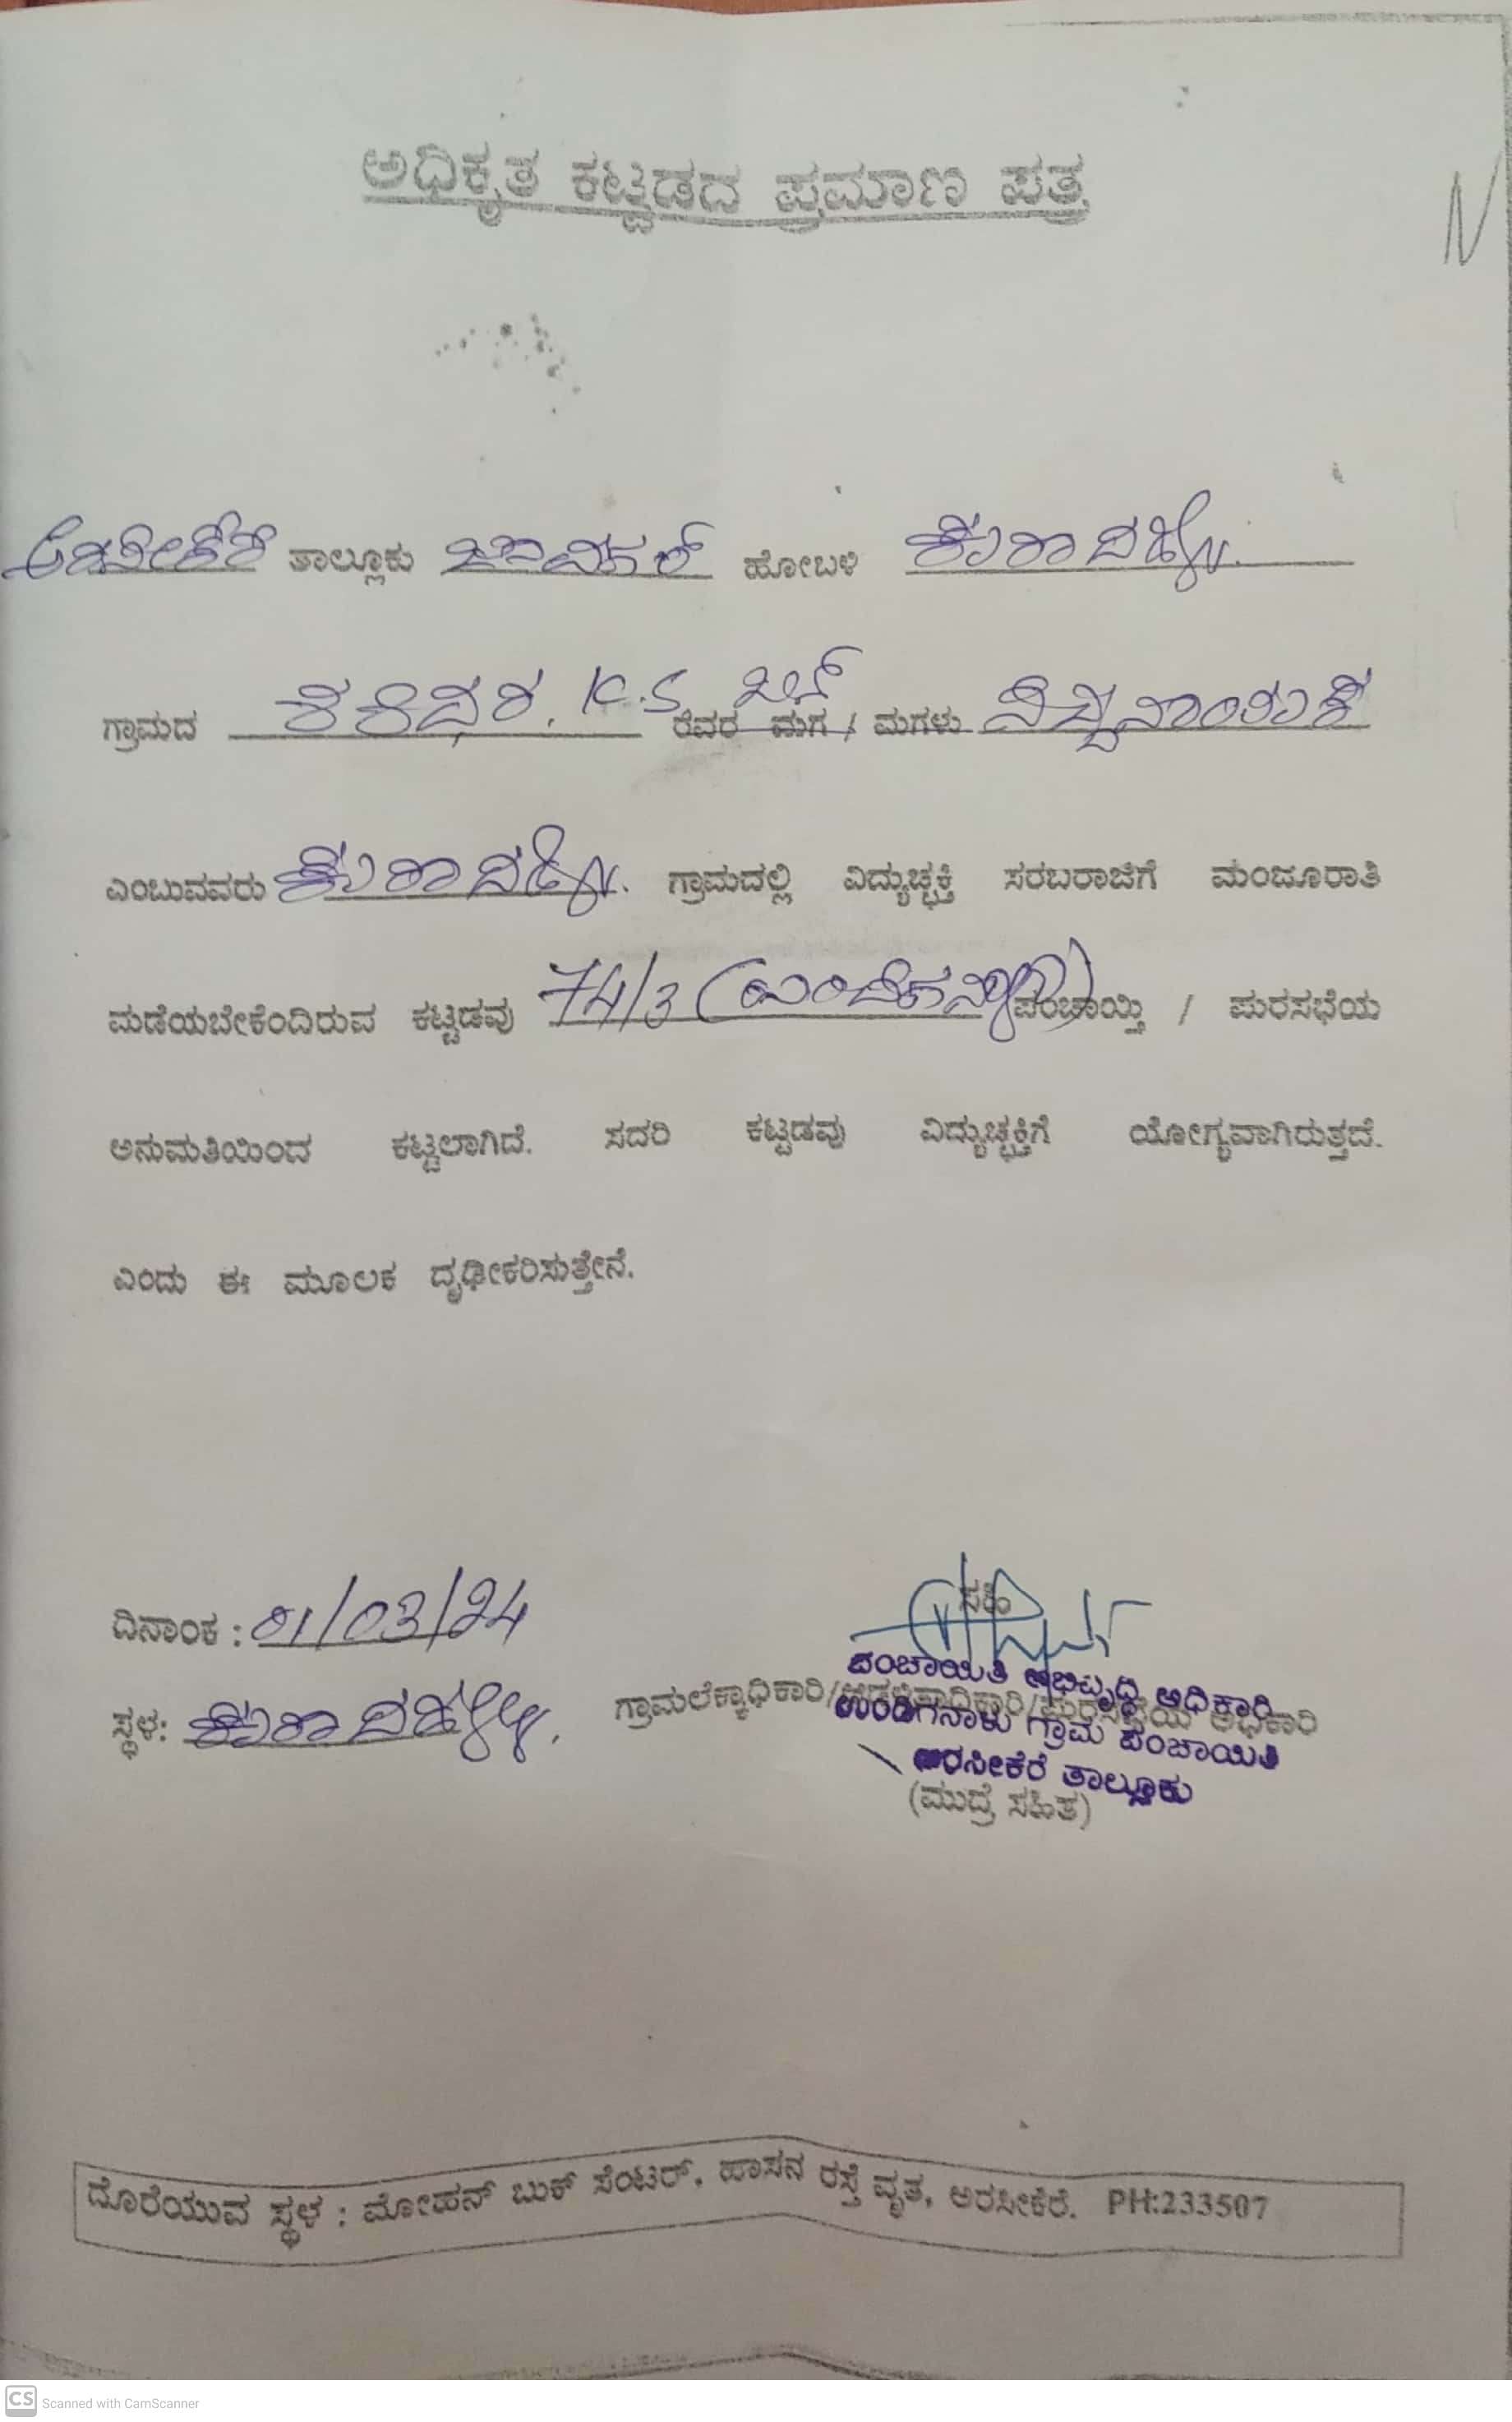 ಅಧಿಕೃತ ಕಟ್ಟಡದ ಪ್ರಮಾಣ ಪತ್ರ
N
ಅರಸೀಕೆರೆ ತಾಲ್ಲೂಕು ಜಾವಗಲ್ ಹೋಬಳಿ
ಗ್ರಾಮದ ಶಶಿಧರ. K.S ಬಿನ್ ರವರ ಮಗ / ಮಗಳು
ಎಂಬುವವರು ಗ್ರಾಮದಲ್ಲಿ ವಿದ್ಯುಚ್ಛಕ್ತಿ ಸರಬರಾಜಿಗೆ ಮಂಜೂರಾತಿ
ಪಡೆಯಬೇಕೆಂದಿರುವ ಕಟ್ಟಡವು 74/3 ಪಂಚಾಯ್ತಿ / ಪುರಸಭೆಯ
ಅನುಮತಿಯಿಂದ ಕಟ್ಟಲಾಗಿದೆ. ಸದರಿ ಕಟ್ಟಡವು ವಿದ್ಯುಚ್ಛಕ್ತಿಗೆ ಯೋಗ್ಯವಾಗಿರುತ್ತದೆ.
ಎಂದು ಈ ಮೂಲಕ ದೃಢೀಕರಿಸುತ್ತೇನೆ.
ಸಹಿ
ದಿನಾಂಕ : 01/03/24
ಪಂಚಾಯಿತಿ ಅಭಿವೃದ್ಧಿ ಅಧಿಕಾರಿ
ಸ್ಥಳ: ಗ್ರಾಮಲೆಕ್ಕಾಧಿಕಾರಿ/ ಅಧಿಕಾರಿ
ಉಂಡಿಗನಾಳು ಗ್ರಾಮ ಪಂಚಾಯಿತಿ
ಅರಸೀಕೆರೆ ತಾಲ್ಲೂಕು
(ಮುದ್ರೆ ಸಹಿತ)
ದೊರೆಯುವ ಸ್ಥಳ : ಮೋಹನ್ ಬುಕ್ ಸೆಂಟರ್, ಹಾಸನ ರಸ್ತೆ ವೃತ, ಅರಸೀಕೆರೆ. PH:233507
CS Scanned with CamScanner